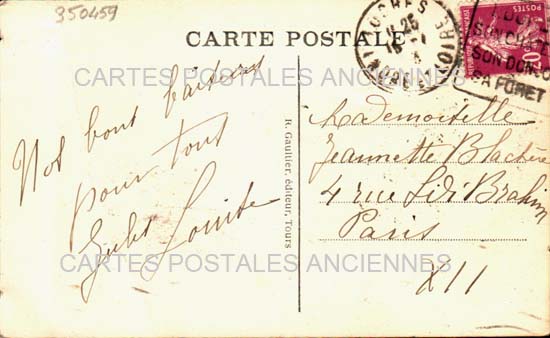 350459
CARTE POSTALE
LOCHES
SON DONJON
SA FORET
POSTES
CARTES POSTALES ANCIENNES
Nos bons baisers
pour tous
Louise
R. Gaultier, éditeur, Tours
Mademoiselle
Jeannette Blachère
4 rue Sidi Brahim
Paris
XII
CARTES POSTALES ANCIENNES